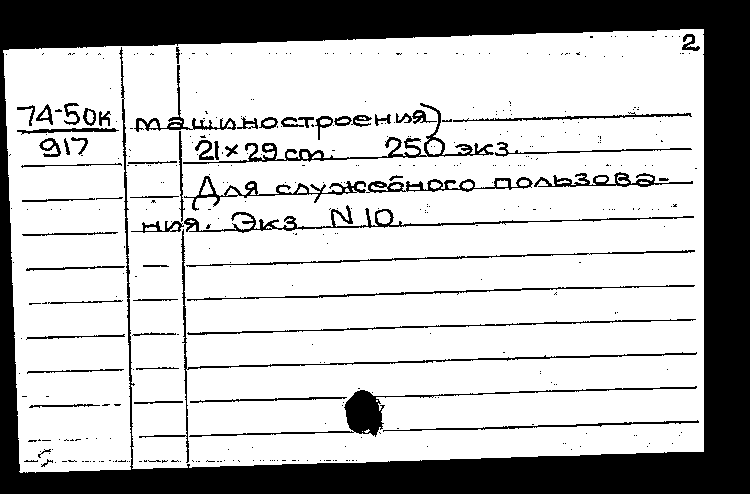 2
74-50к
917
машиностроения)
21×29 cm. 250 экз.
Для служебного пользова-
ния. Экз. N 10.